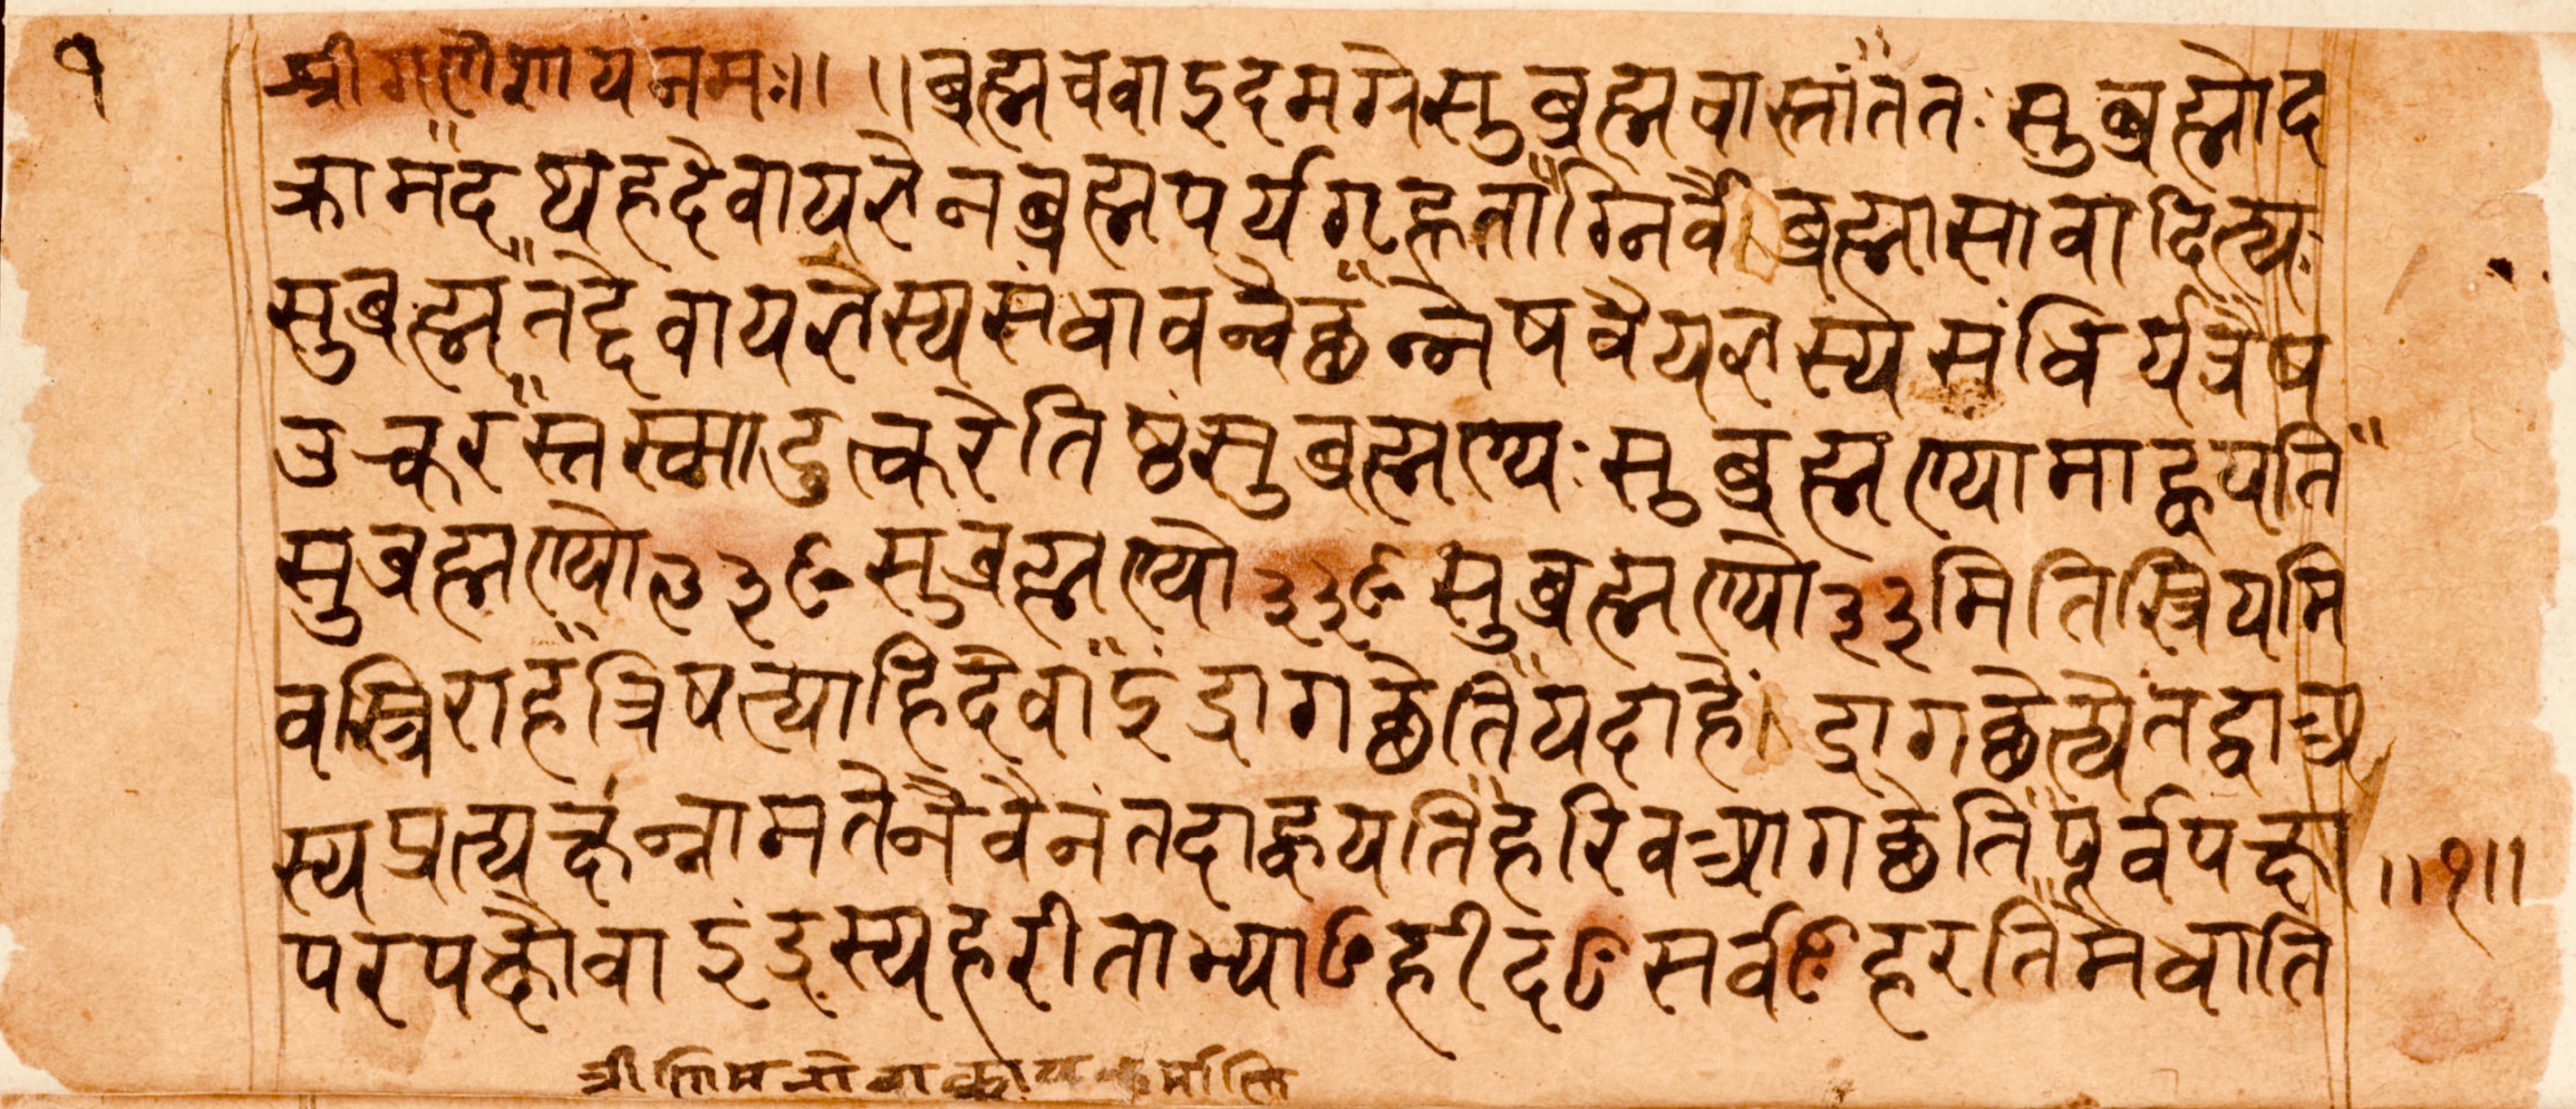 १
श्रीगणेशायनमः॥ ॥ब्रह्मचवाऽइदमग्रेसुब्रह्मचास्तांततःसुब्रह्मोद
क्रामदथहदेवायज्ञेनब्रह्मपर्यगृह्णताग्निर्वैब्रह्मासावादित्यः
सुब्रह्मतद्देवायज्ञस्यसंधावन्वैछन्नेषवैयज्ञस्यसंधिर्यत्रैष
उत्करस्तस्मादुत्करेतिष्ठंसुब्रह्मण्यःसुब्रह्मण्यामाह्वयति
सुब्रह्मण्यो३३ꣳसुब्रह्मण्यो३३ꣳसुब्रह्मण्यो३३मितिस्त्रियमि
वत्रिराहत्रिषत्याहिदेवाइंद्रागछेतियदाहेंद्रागछेत्येतद्वाअ
स्यप्रत्यक्षंन्नामतेनैवैनंतदाह्वयतिहरिवआगछेतिपूर्वपक्षा
॥१॥
परपक्षौवाइंद्रस्यहरीताभ्याꣳहीदꣳसर्वꣳहरतिमेधाति